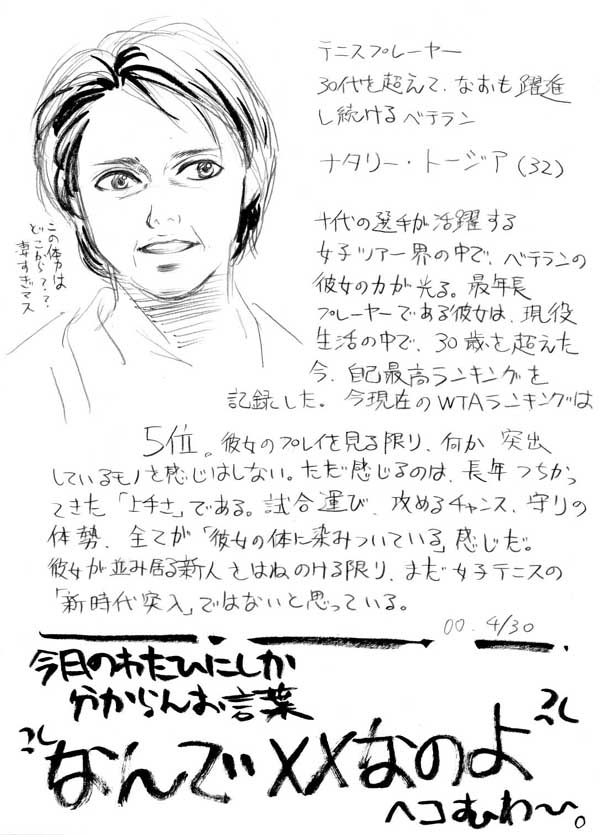 テニスプレーヤー
30代を超えて、なおも躍進
し続けるベテラン
ナタリー・トージア(32)
この体力は
どこから???
凄すぎマス
十代の選手が活躍する
女子ツアー界の中で、ベテランの
彼女の力が光る。最年長
プレーヤーである彼女は、現役
生活の中で、30歳を超えた
今、自己最高ランキングを
記録した。今現在のWTAランキングは
5位。彼女のプレイを見る限り、何か突出
しているモノを感じはしない。ただ感じるのは、長年つちかっ
てきた「上手さ」である。試合運び、攻めるチャンス、守りの
体勢、全てが「彼女の体に染みついている」感じだ。
彼女が並み居る新人をはねのける限り、まだ女子テニスの
「新時代突入」ではないと思っている。
00. 4/30
今月のわたひにしか
分からんお言葉
"なんでXXなのよ"
ヘコむわ〜。